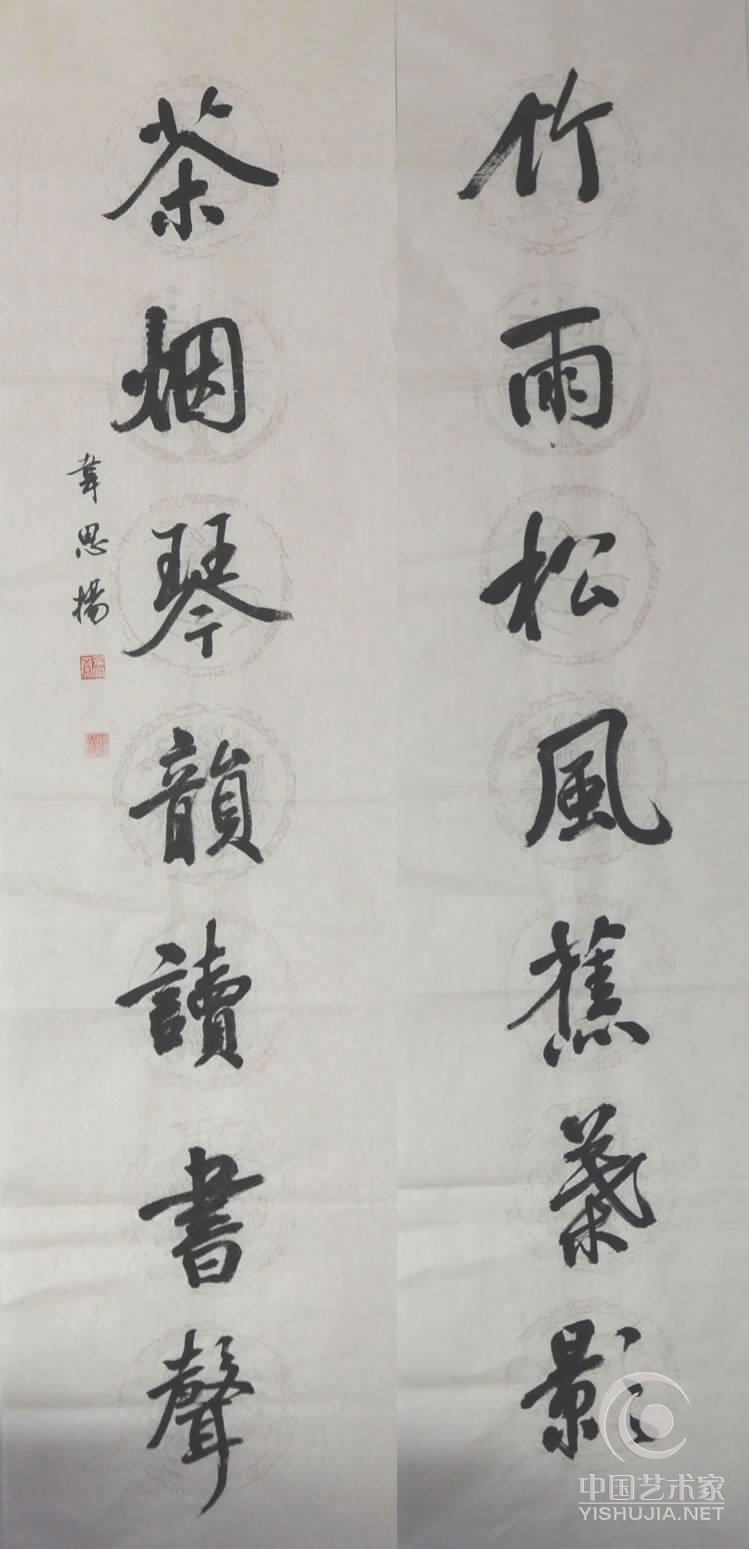 竹雨松風蕉葉影
茶烟琴韻讀書聲
韋思揚
中国艺术家
YISHUJIA.NET